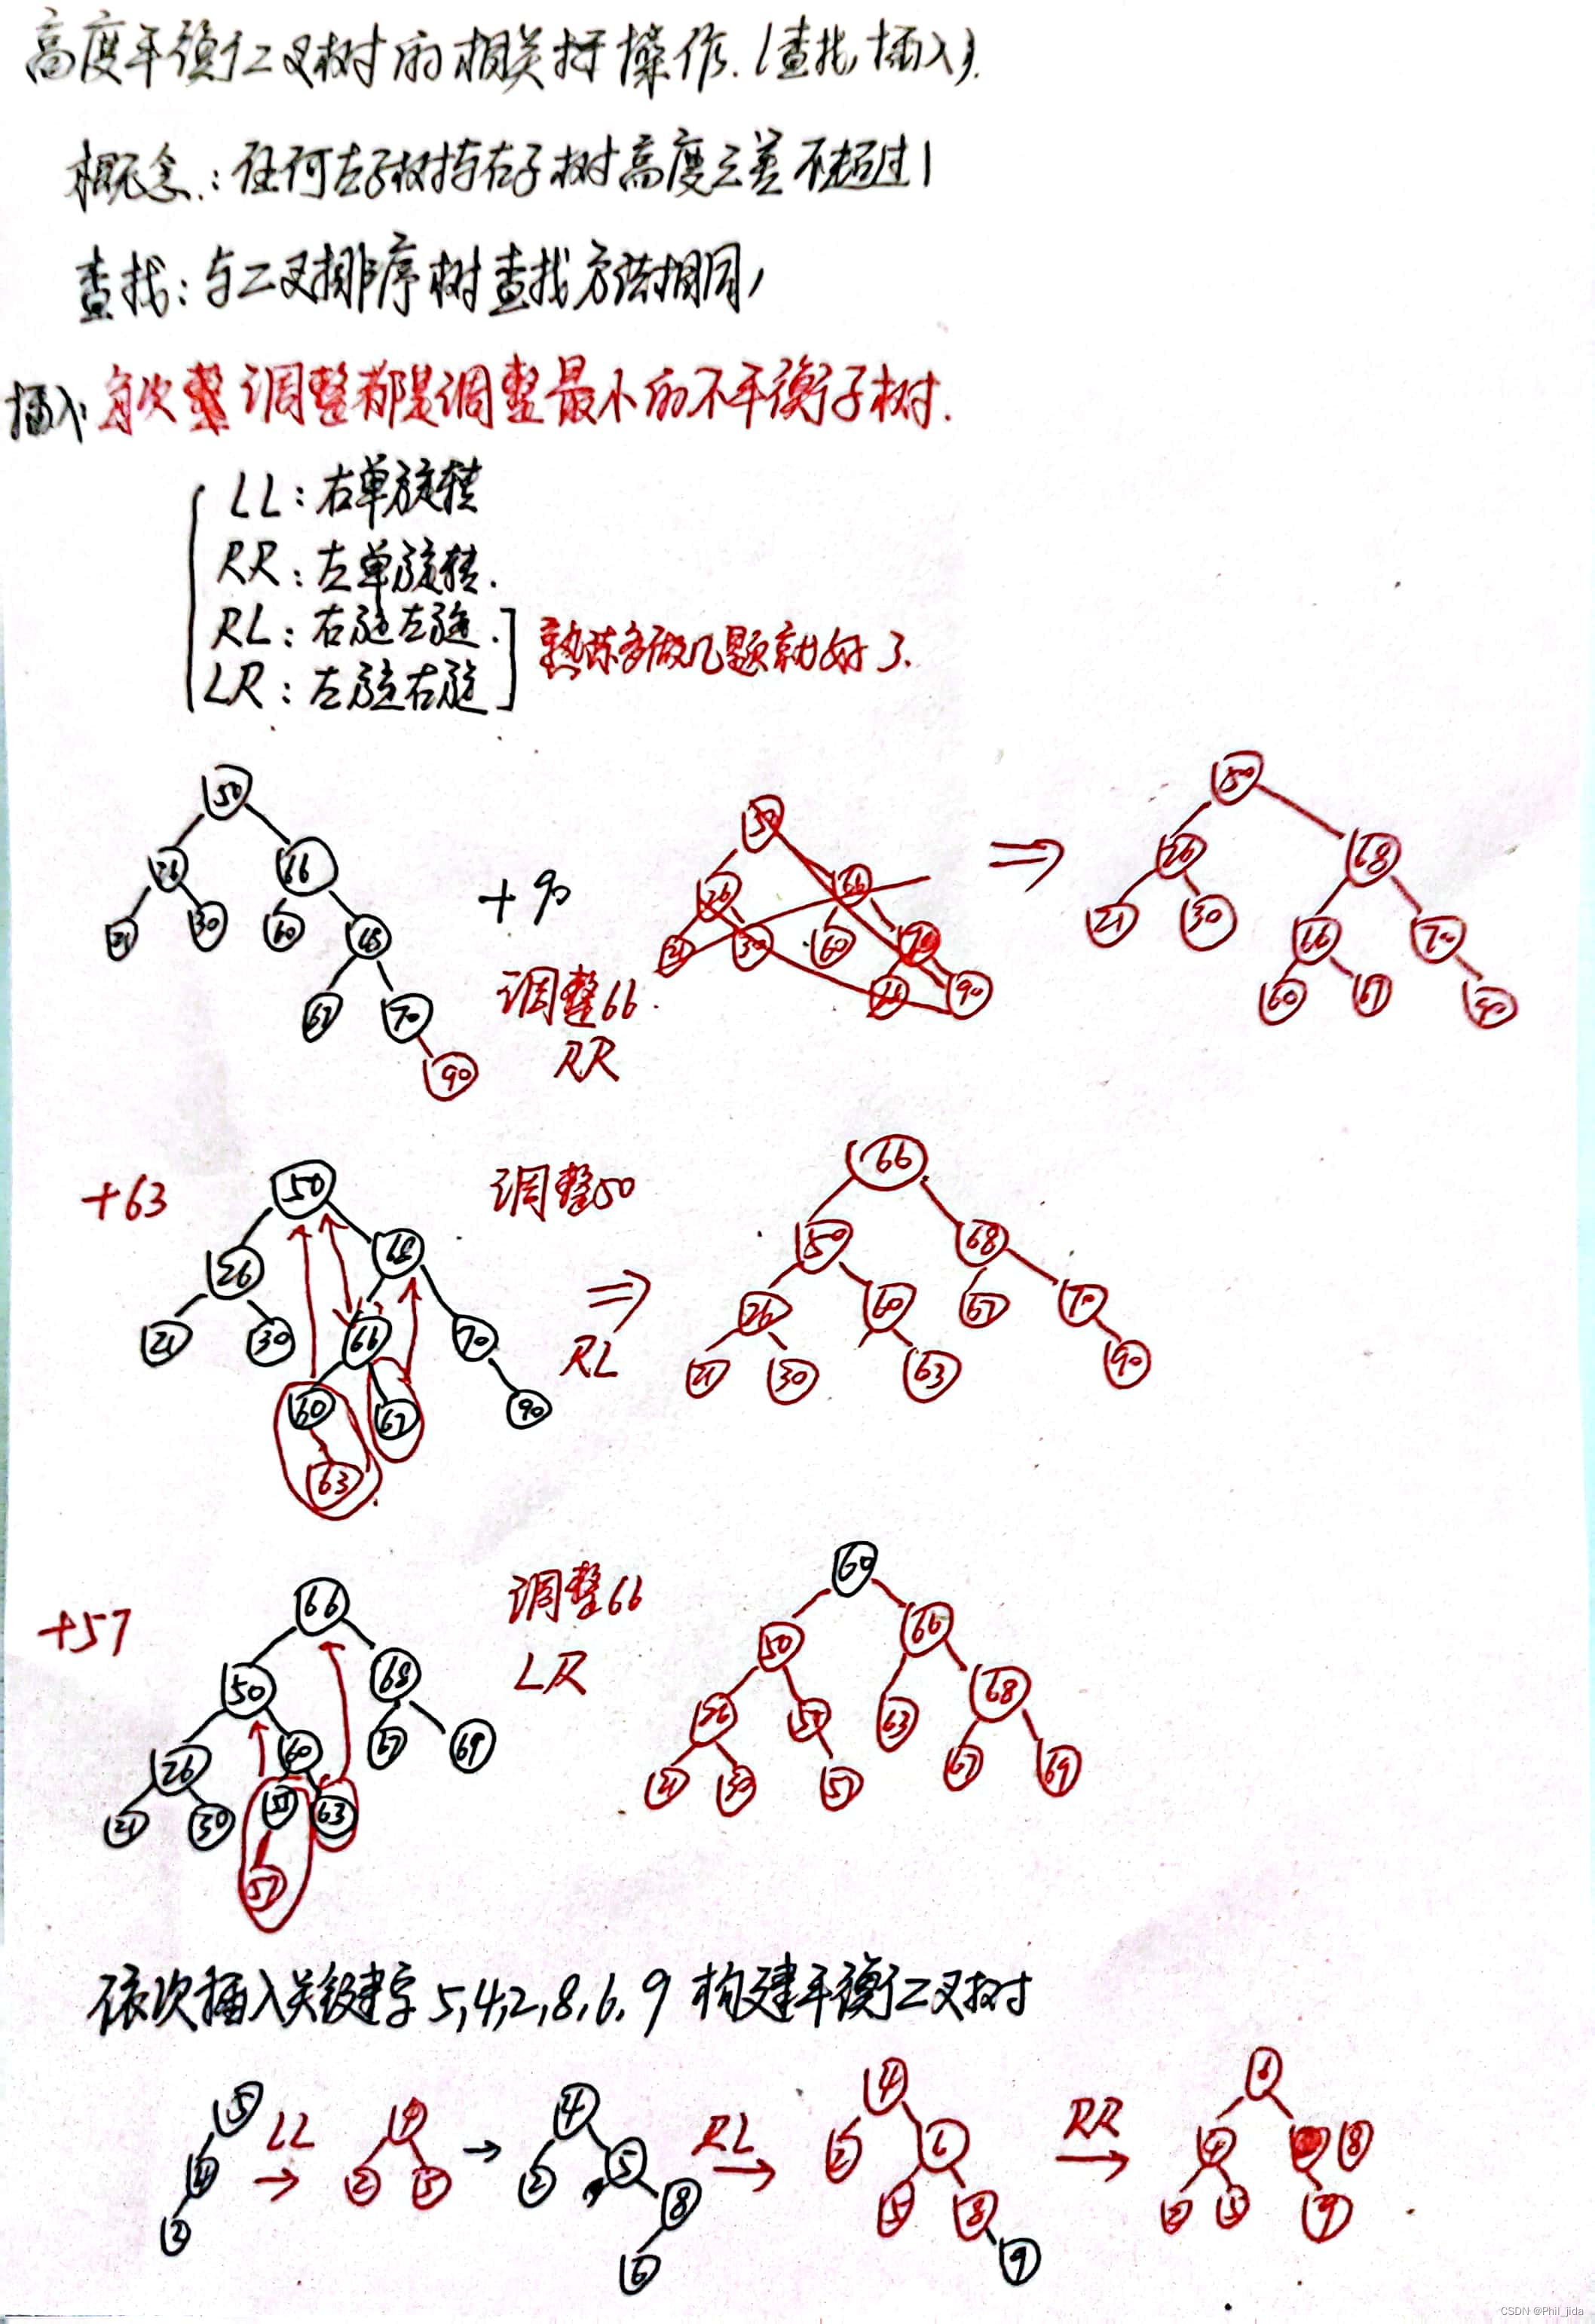 高度平衡二叉树的相关操作.(查找,插入).
概念:任何左子树与右子树高度之差不超过1
查找:与二叉排序树查找方法相同,
插入:每次调整都是调整最小的不平衡子树.
LL:右单旋转
RR:左单旋转.
RL:右旋左旋.
LR:左旋右旋
熟练多做几题就好了.
50
26 66
21 30 60 68
67 70
90
+90
调整66
RR
50
26 66
21 30 60 70
90
⇒
50
26 68
21 30 66 70
60 67 90
+63
50
26 68
21 30 66 70
60 67 90
63
调整50
⇒
RL
66
50 68
26 60 67 70
21 30 63 90
+57
66
50 68
26 60 67 69
21 30 63
57
调整66
LR
60
50 66
26 63 68
21 30 57 67 69
依次插入关键字5,4,2,8,6,9构建平衡二叉树
5
4
2
LL
→
4
2 5
→
4
2 5
8
6
RL
→
4
2 6
5 8
9
RR
→
6
4 8
2 5 9
CSDN @Phil_jida